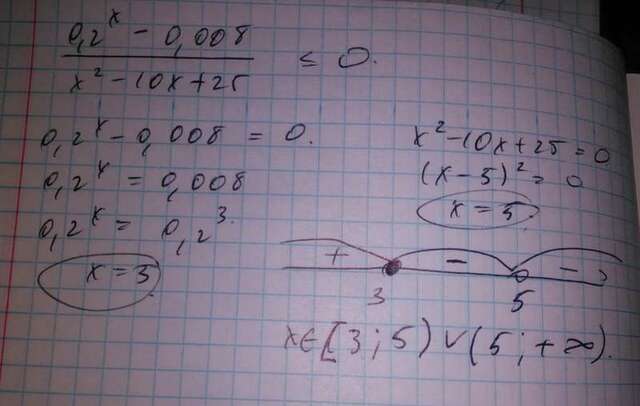 0,2^x - 0,008 / x² - 10x + 25 ≤ 0.
0,2^x - 0,008 = 0.
0,2^x = 0,008
0,2^x = 0,2^3.
x = 3
x² - 10x + 25 = 0
(x - 5)² = 0
x = 5
+ - -
3 5
x ∈ [3; 5) ∨ (5; +∞).